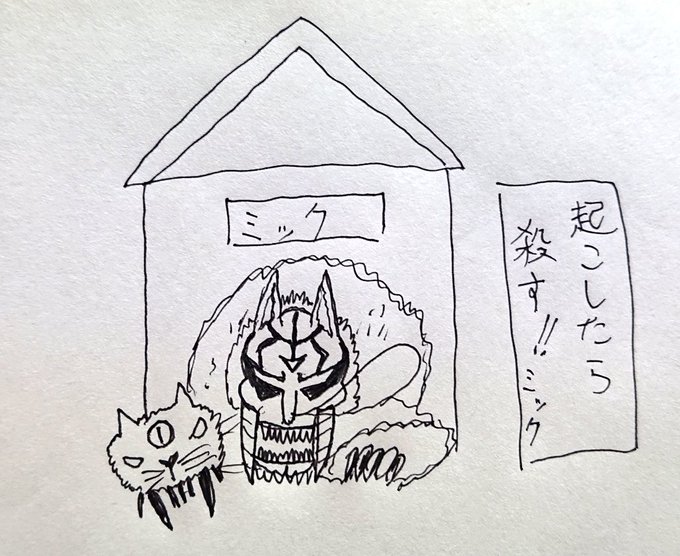 ミック
起こしたら
殺す!! ミック